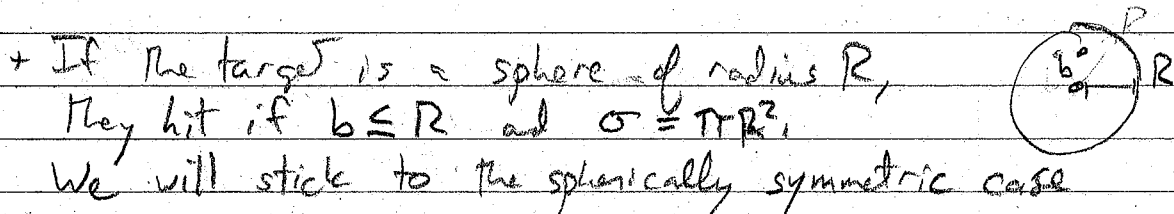 + If the target is a sphere of radius R,
they hit if b ≤ R and σ = πR².
We will stick to the spherically symmetric case
b
R